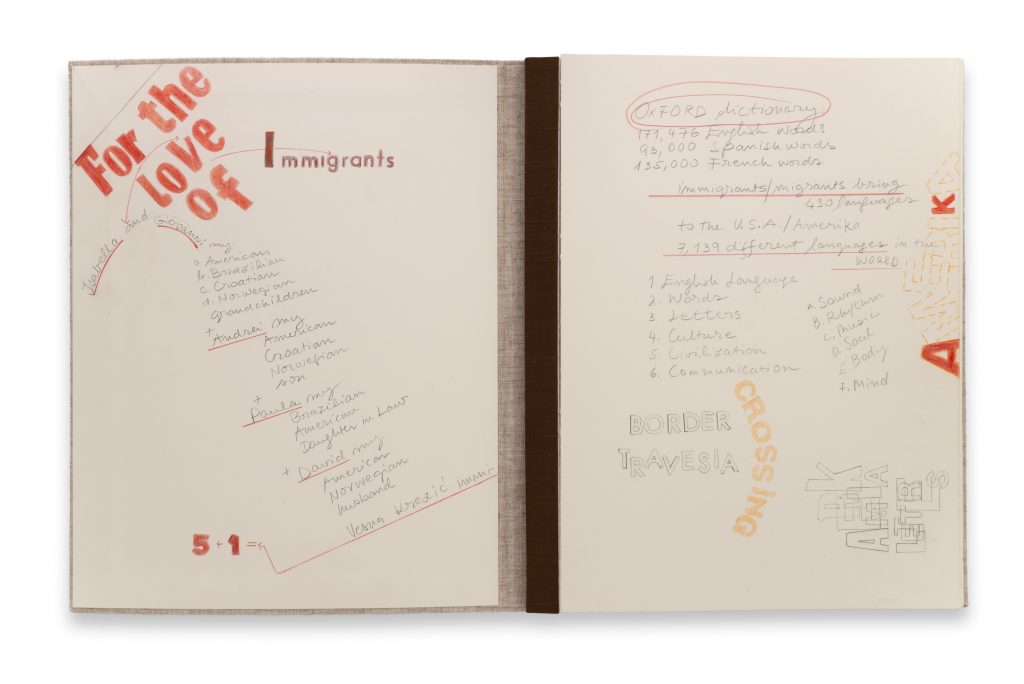 For the
love
of
Immigrants
Isabella and Giovanni my
a. American
b. Brazilian
c. Croatian
d. Norwegian
grandchildren
+
Andrei my
American
Croatian
Norwegian
son
+
Paula my
Brazilian
American
Daughter in Law
+ David my
American
Norwegian
husband
Vesna Krezić immi-
5+1=
OxFORD dictionary:
171,476 English words
93,000 Spanish words
135,000 French words
immigrants/migrants bring
430 languages
to the U.S.A./Amerika
7,139 different languages in the
WORLD
1 English Language
2. Words
3. Letters
4. Culture
5. Civilization
6. Communication
A. Sound
B. Rhythm
C. Music
D. Soul
E. Body
F. Mind
AMERIKA
BORDER
TRAVESIA
CROSSING